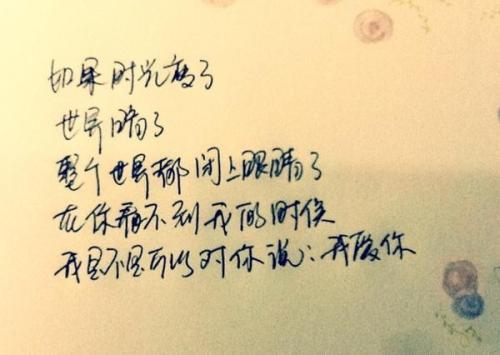 如果时光了
世界暗了
整个世界都闭上眼睛了
在你看不到我的时候
我是不是可以对你说:我爱你